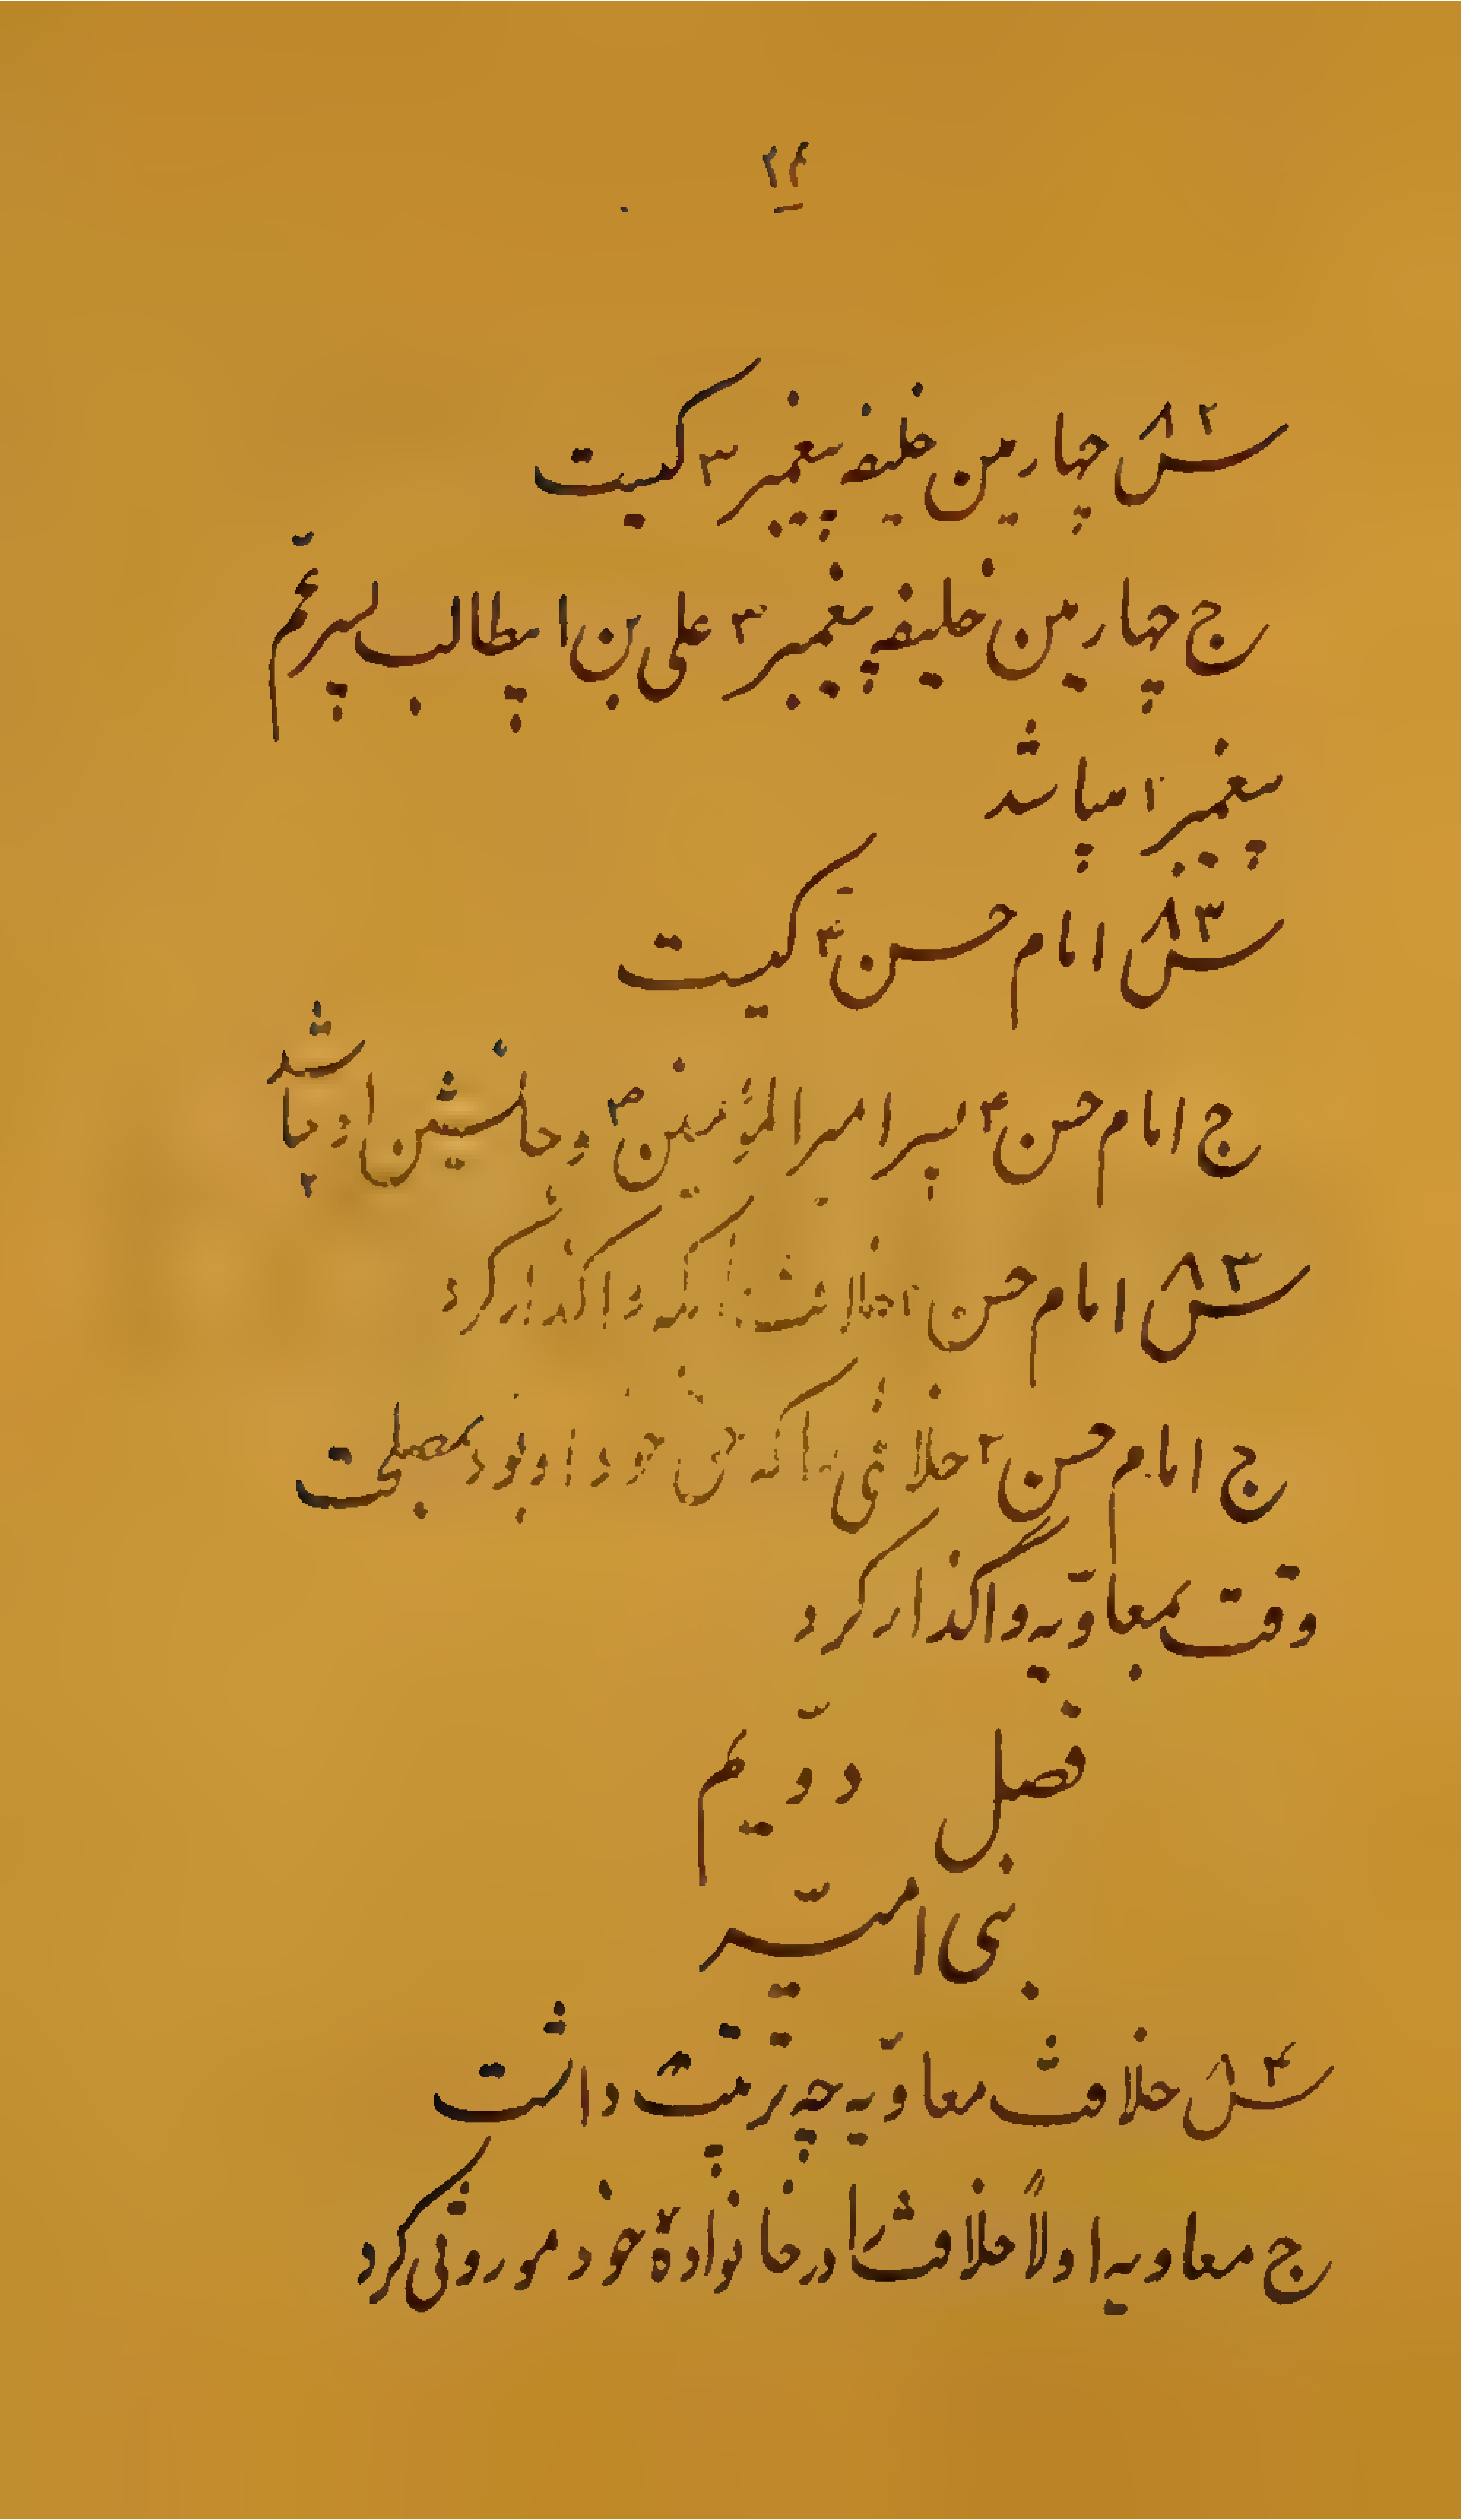 ۲۴
س ۸۲ چهارمین خلیفه پیغمبر ۳ کیست
ج چهارمین خلیفه پیغمبر ۳ علی بن ابیطالب پسر عمّ
پیغمبر میباشد
س ۸۳ امام حسن ۳ کیست
ج امام حسن ۴ پسر امیرالمؤمنین ۳ و جانشین او میباشد
س ۸۳ امام حسن ۲ خلافت را که واگذار کرد
ج امام حسن ۲ خلافتی را که حق خود او بود بمصلحت
وقت بمعاویّه واگذار کرد
فصل دوّیم
بنی امیّه
س ۸۴ خلافت معاویّه چه ترتیب داشت
ج معاویه اولاً خلافت را در خانوادۀ خود موروثی کرد